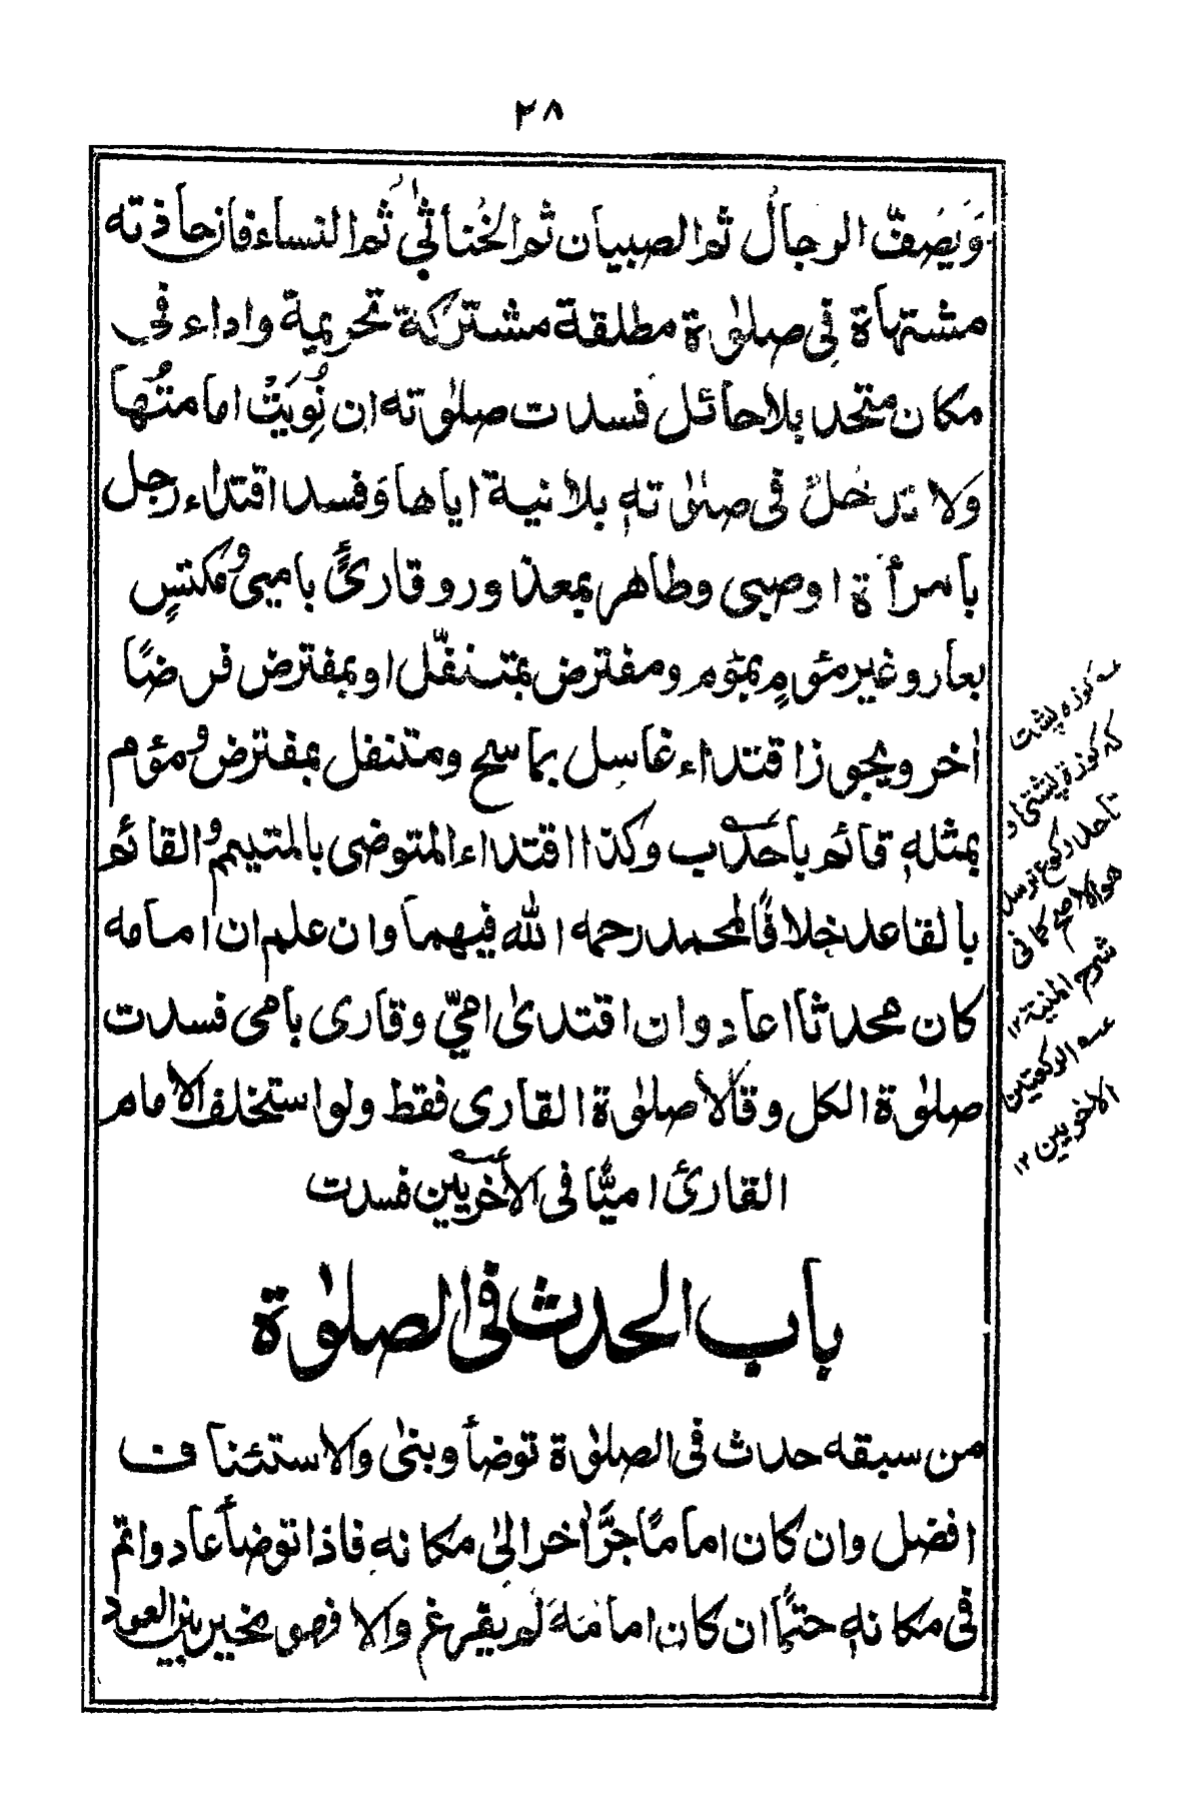 ٢٨
وَيَصُفّ الرجالُ ثم الصبيان ثم الخُناثٰى ثُم النساء فان حاذته
مشتهاة فى صلوٰة مطلقة مشتركة تحريمة واداء فى
مكان متحد بلا حائل فسدت صلوٰته ان نُوِيَتْ امامتُها
ولا تدخلُ فى صلوٰته بلانية اياها وَفسد اقتداء رجل
بامرأة او صبى وطاهر بمعذور وقارئٍ بامیى ومكتسٍ
بعار وغير مئومٍ بمؤم ومفترض بمتنفّل او بمفترض فرضًا
اٰخر ويجوز اقتداء غاسل بماسح ومتنفل بمفترض ومؤم
بمثلهٖ قائم باحدب وكذا اقتداء المتوضى بالمتيمم والقائم
بالقاعد خلافًا لمحمد رحمه الله فيهما وان علم ان امامه
كان محدثا اعاد وان اقتدىٰ امیّ وقارى بامى فسدت
صلوٰة الكل وقالا صلوٰة القارى فقط ولو استخلف الامام
القارئ اميًّا فى الأخريين فسدت
باب الحدث فى الصلوٰة
من سبقه حدث فى الصلوٰة توضأ وبنىٰ والاستئناف
افضل وان كان امامًا جرَّ اٰخر الىٰ مكانهٖ فاذا توضأ عاد واتم
فى مكانهٖ حتمًا ان كان امامَهَ لم يفرغ والا فهو مخير بين العود
لـه كوزه پشت
كه كوزة پشتى او
تاحد ركوع نرسد
هو الاصح كما فى
شرح المنية ١٢
عـه الركعتين
الاخريين ١٢